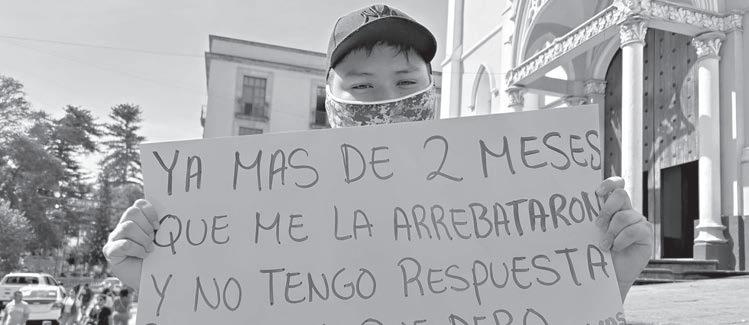 YA MAS DE 2 MESES
QUE ME LA ARREBATARON
Y NO TENGO RESPUESTA